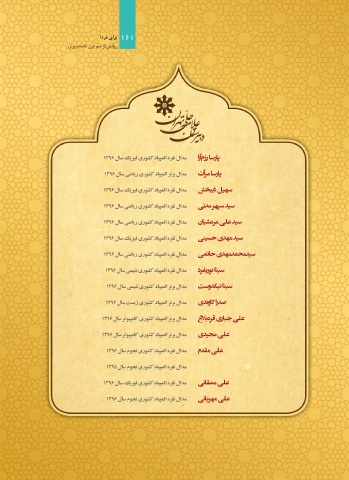 ۱۶۱
برای فردا
روایتی از نیم قرن
دبیرستان علامه حلی تهران
پارسا رزم‌آرا مدال نقره المپیاد کشوری فیزیک سال ۱۳۹۶
پارسا مرآت مدال برنز المپیاد کشوری ریاضی سال ۱۳۹۶
سهیل ذبیخش مدال نقره المپیاد کشوری فیزیک سال ۱۳۹۶
سید سپهر مدنی مدال نقره المپیاد کشوری ریاضی سال ۱۳۹۶
سید علی مرعشیان مدال نقره المپیاد کشوری ریاضی سال ۱۳۹۶
سید مهدی حسینی مدال نقره المپیاد کشوری فیزیک سال ۱۳۹۶
سیدمحمدمهدی حاتمی مدال نقره المپیاد کشوری ریاضی سال ۱۳۹۶
سینا نوری‌فرد مدال نقره المپیاد کشوری شیمی سال ۱۳۹۶
سینا نیکدوست مدال برنز المپیاد کشوری شیمی سال ۱۳۹۶
صدرا کاوندی مدال برنز المپیاد کشوری زیست سال ۱۳۹۶
علی جباری قره‌باغ مدال برنز المپیاد کشوری کامپیوتر سال ۱۳۹۶
علی مجیدی مدال برنز المپیاد کشوری کامپیوتر سال ۱۳۹۶
علی مقدم مدال نقره المپیاد کشوری نجوم سال ۱۳۹۶
مدال نقره المپیاد کشوری نجوم سال ۱۳۹۵
علی ممقانی مدال نقره المپیاد کشوری فیزیک سال ۱۳۹۶
علی مهربانی مدال برنز المپیاد کشوری نجوم سال ۱۳۹۶